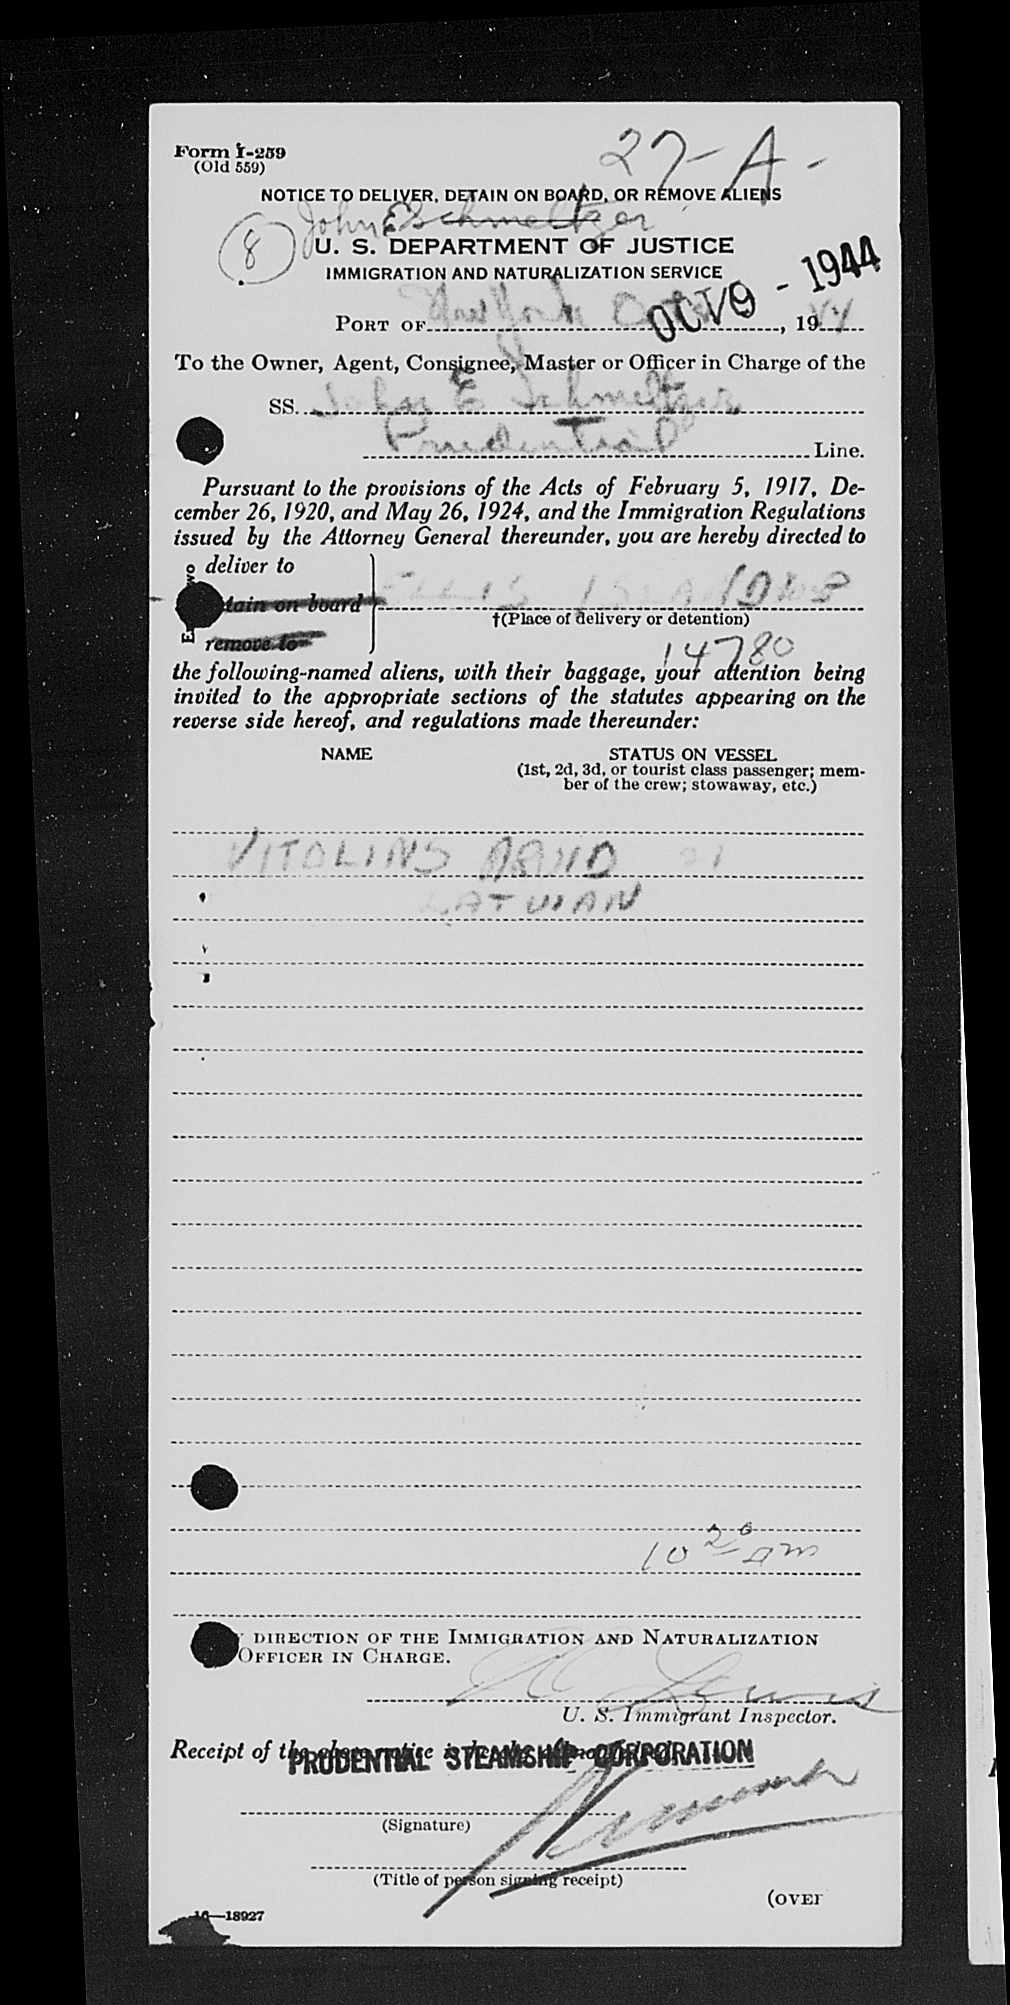 Form I-259
(Old 559)
27-A-
NOTICE TO DELIVER, DETAIN ON BOARD, OR REMOVE ALIENS
John E Schmeltzer
8
U. S. DEPARTMENT OF JUSTICE
IMMIGRATION AND NATURALIZATION SERVICE
OCT 9 - 1944
PORT OF New York, 1944
To the Owner, Agent, Consignee, Master or Officer in Charge of the
SS. John E Schmeltzer
Prudential Line.
Pursuant to the provisions of the Acts of February 5, 1917, De-
cember 26, 1920, and May 26, 1924, and the Immigration Regulations
issued by the Attorney General thereunder, you are hereby directed to
deliver to
tain on board
ELLIS ISLAND
remove to
†(Place of delivery or detention)
14780
the following-named aliens, with their baggage, your attention being
invited to the appropriate sections of the statutes appearing on the
reverse side hereof, and regulations made thereunder:
NAME STATUS ON VESSEL
(1st, 2d, 3d, or tourist class passenger; mem-
ber of the crew; stowaway, etc.)
VITOLINS ARVID 21
LATVIAN
10 20 am
DIRECTION OF THE IMMIGRATION AND NATURALIZATION
OFFICER IN CHARGE.
Lewis
U. S. Immigrant Inspector.
Receipt of the above notice is hereby acknowledged.
PRUDENTIAL STEAMSHIP CORPORATION
(Signature)
(Title of person signing receipt)
(OVER
16—18927